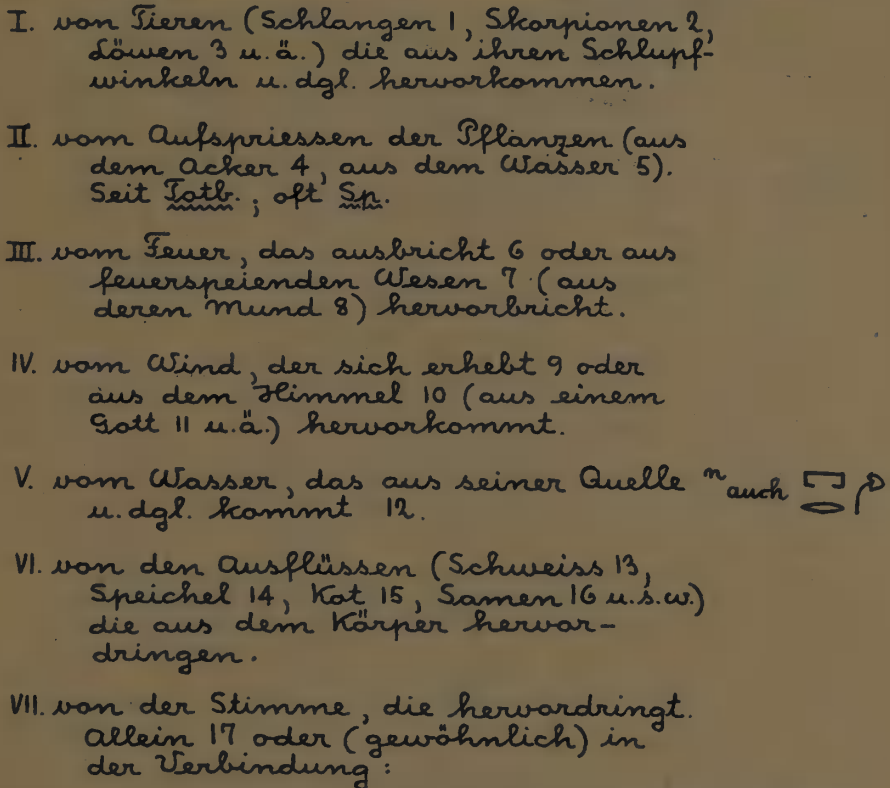 I. von Tieren (Schlangen 1, Skorpionen 2,
Löwen 3 u.ä.) die aus ihren Schlupf-
winkeln u. dgl. hervorkommen.
II. vom Aufspriessen der Pflanzen (aus
dem Acker 4, aus dem Wasser 5).
Seit Totb.; oft Sp.
III. vom Feuer, das ausbricht 6 oder aus
feuerspeienden Wesen 7 (aus
deren Mund 8) hervorbricht.
IV. vom Wind, der sich erhebt 9 oder
aus dem Himmel 10 (aus einem
Gott 11 u.ä.) hervorkommt.
V. vom Wasser, das aus seiner Quelle n auch
u. dgl. kommt 12.
VI. von den Ausflüssen (Schweiss 13,
Speichel 14, Kot 15, Samen 16 u.s.w.)
die aus dem Körper hervor-
dringen.
VII. von der Stimme, die hervordringt.
Allein 17 oder (gewöhnlich) in
der Verbindung: